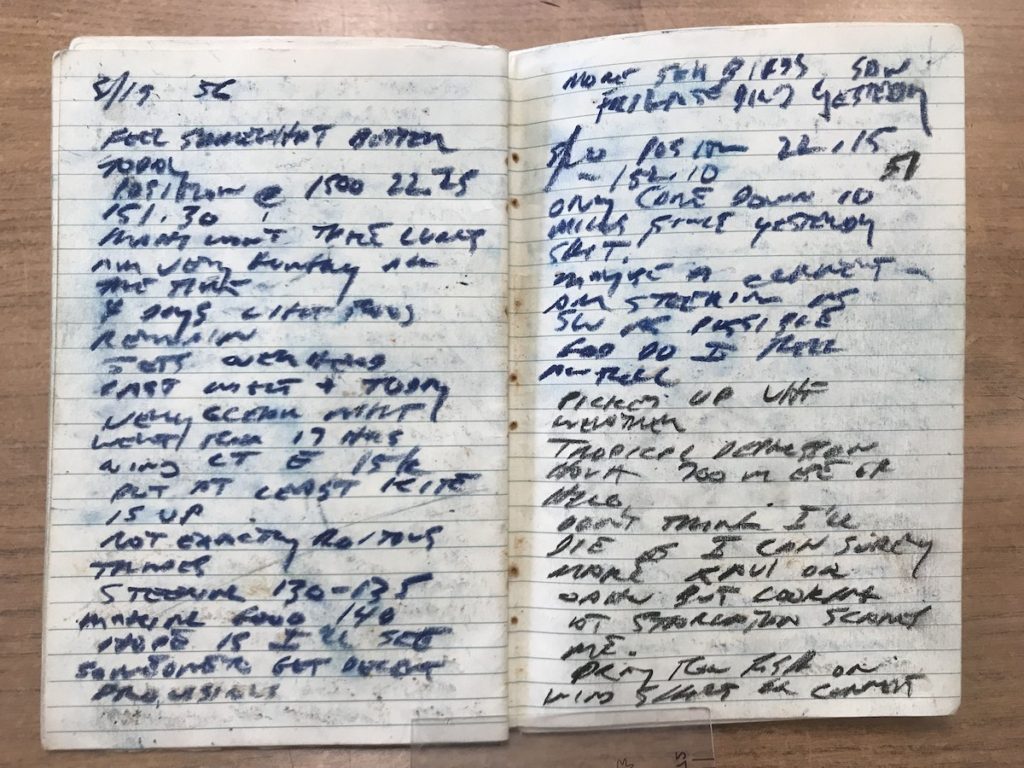 5/19 56
FEEL SOMEWHAT BETTER
TODAY
POSITION @ 1500 22.25
151.30
MANY WON'T TAKE LURES
AM VERY HUNGRY ALL
THE TIME
4 DAYS LIGHT FOOD
REMAIN
JETS OVERHEAD
LAST NIGHT + TODAY
VERY CLEAR NIGHT
WENT 17 HRS
WIND LT E 15K
BUT AT LEAST KITE
IS UP
NOT EXACTLY ROITOUS
TRADES
STEERING 130-135
MAKING GOOD 140
HOPE IS I'LL SEE
SOMEONE & GET DECENT
PROVISIONS
MORE SEA BIRDS SAW
FRIGATE BIRD YESTERDAY
5/20 POSITION 22.15
152.10 57
ONLY COME DOWN 10
MILES SINCE YESTERDAY
SHIT.
MAYBE A CURRENT -
AM STEERING AS
SW AS POSSIBLE
GOD DO I FEEL
AWFULL
PICKED UP VHF
WEATHER
TROPICAL DEPRESSION
700 M ESE OF
HILO,
DON'T THINK I'LL
DIE I CAN SURELY
MAKE KAUI OR
OAHU BUT LOOKING
AT STARVATION SCARES
ME.
PRAY FOR FISH OR
WIND SHIFT OR CURRENT